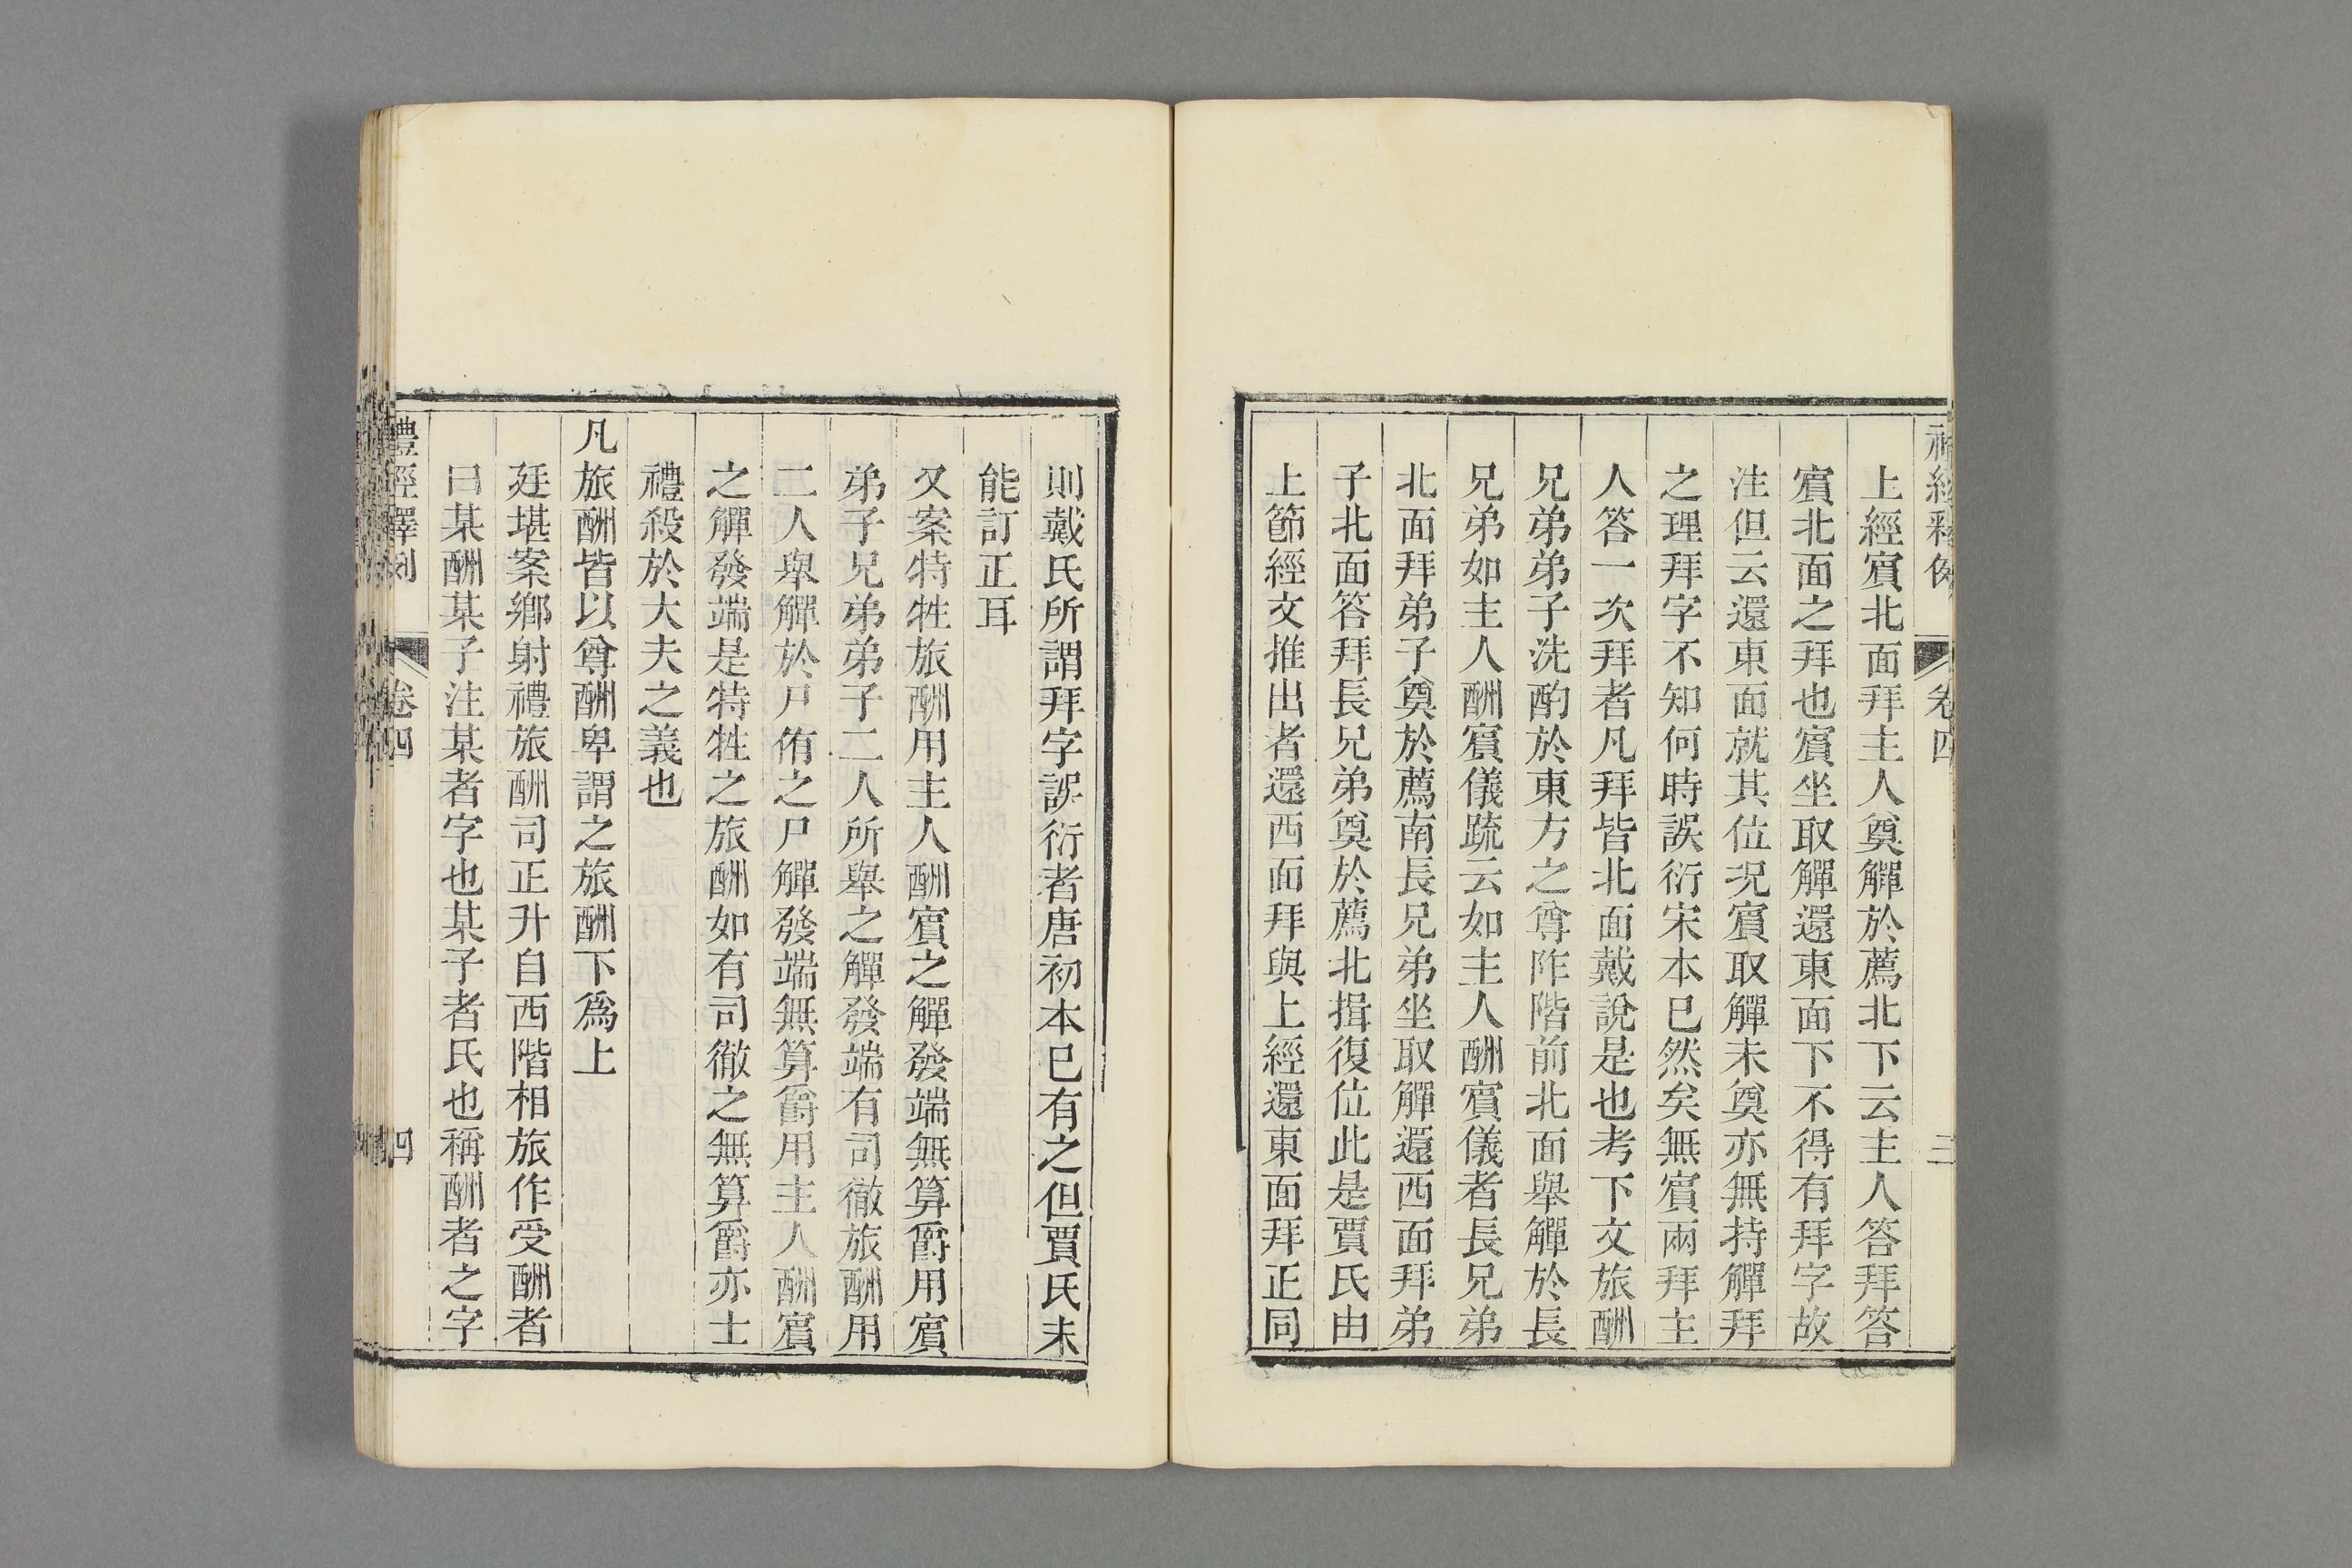 禮經釋例 卷四 三
上經賔北面拜主人奠觶於薦北下云主人答拜答
賔北面之拜也賔坐取觶還東面下不得有拜字故
注但云還東面就其位况賔取觶未奠亦無持觶拜
之理拜字不知何時誤衍宋本已然矣無賔兩拜主
人答一次拜者凡拜皆北面戴說是也考下文旅酬
兄弟弟子洗酌於東方之尊阼階前北面舉觶於長
兄弟如主人酬賔儀疏云如主人酬賔儀者長兄弟
北面拜弟子奠於薦南長兄弟坐取觶還西面拜弟
子北面答拜長兄弟奠於薦北揖復位此是賈氏由
上節經文推出者還西面拜與上經還東面拜正同
則戴氏所謂拜字誤衍者唐初本已有之但賈氏未
能訂正耳
又案特牲旅酬用主人酬賔之觶發端無算爵用賔
弟子兄弟弟子二人所舉之觶發端有司徹旅酬用
二人舉觶於尸侑之尸觶發端無算爵用主人酬賔
之觶發端是特牲之旅酬如有司徹之無算爵亦士
禮殺於大夫之義也
凡旅酬皆以尊酬卑謂之旅酬下爲上
廷堪案鄉射禮旅酬司正升自西階相旅作受酬者
曰某酬某子注某者字也某子者氏也稱酬者之字
禮經釋例 卷四 四